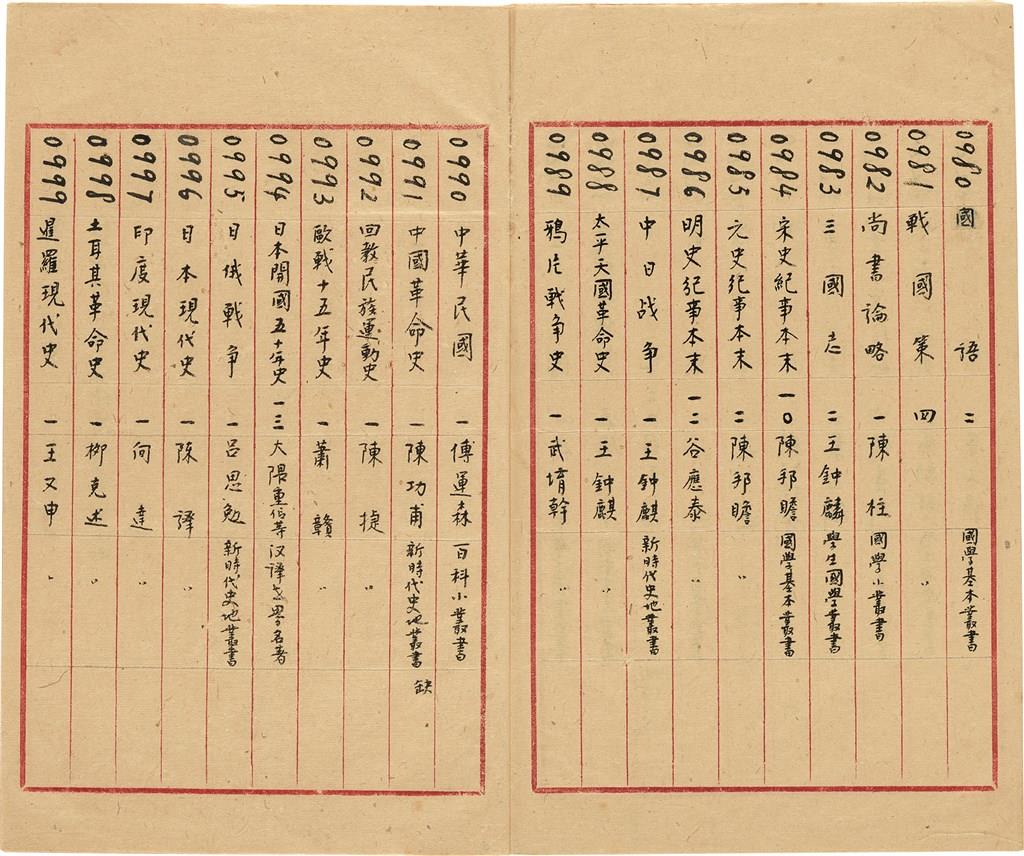 0980 國語 二 國學基本叢書
0981 戰國策 四 〃
0982 尚書論略 一 陳柱 國學小叢書
0983 三國志 二 王鐘麟 學生國學叢書
0984 宋史紀事本末 一〇 陳邦瞻 國學基本叢書
0985 元史紀事本末 二 陳邦瞻 〃
0986 明史紀事本末 一二 谷應泰
0987 中日战争 一 王鈡麒 新時代史地叢書
0988 太平天國革命史 一 王鈡麒 〃
0989 鴉片戰争史 一 武堉幹 〃
0990 中華民國 一 傅運森 百科小叢書
0991 中國革命史 一 陳功甫 新時代史地叢書 缺
0992 回教民族運動史 一 陳捷 〃
0993 歐戰十五年史 一 蕭贛
0994 日本開國五十年史 一三 大隈重信等 汉譯世界名著
0995 日俄戰争 一 呂思勉 新時代史地叢書
0996 日本現代史 一 陈譯 〃
0997 印度現代史 一 向達 〃
0998 土耳其革命史 一 柳克述
0999 暹羅現代史 一 王又申 〃